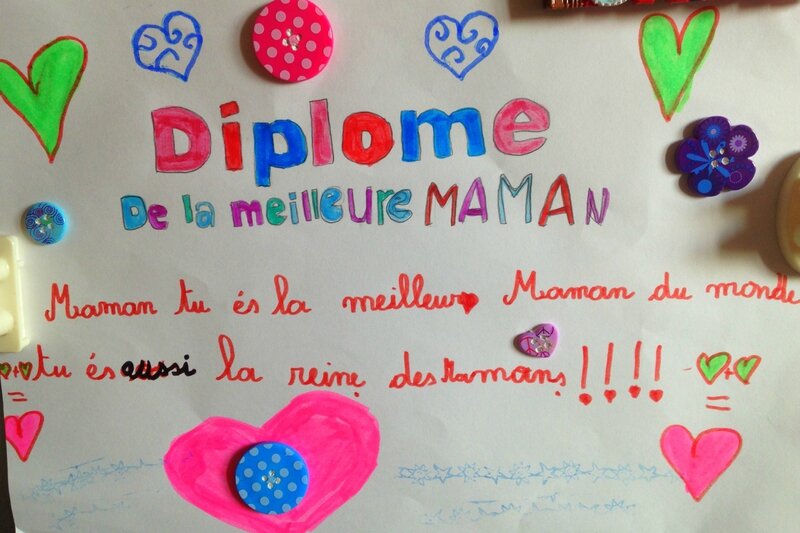 Diplome
De la meilleure MAMAN
Maman tu és la meilleure Maman du monde
tu és aussi la reine des Mamans !!!!